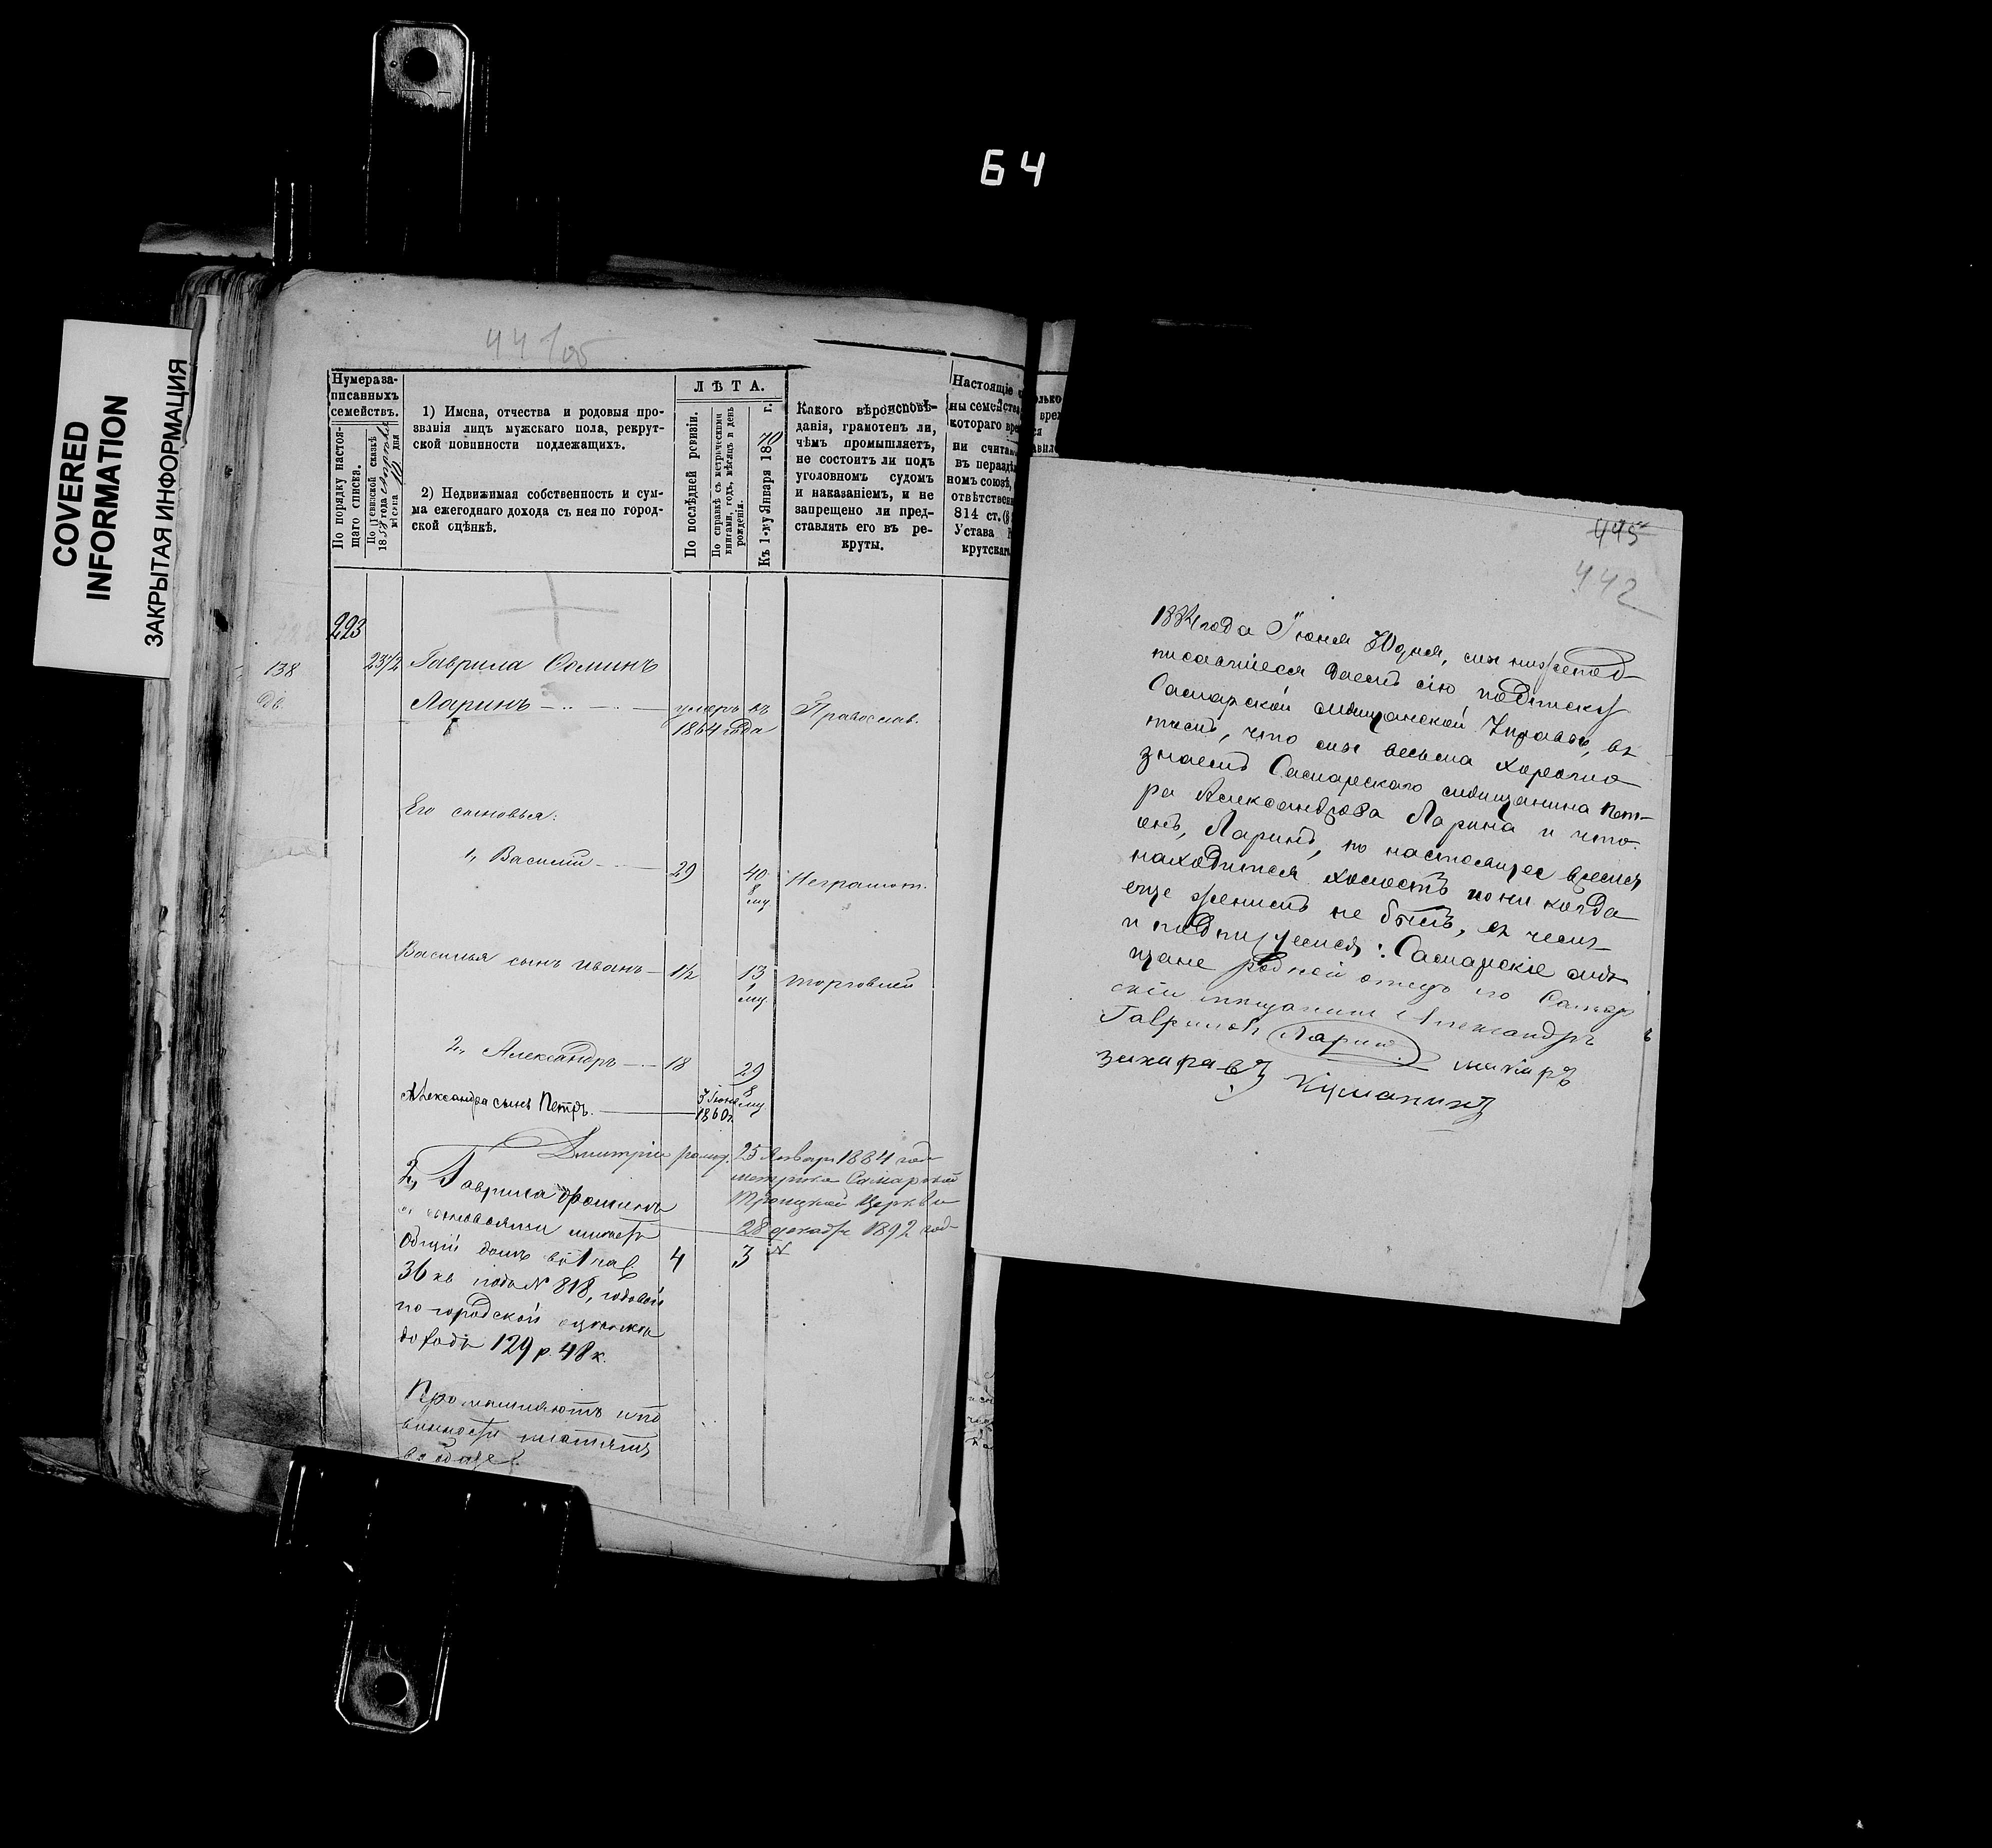 64
COVERED
INFORMATION
ЗАКРЫТАЯ ИНФОРМАЦИЯ
441об
Нумера за-
писанныхъ
семействъ.
По порядку настоя-
щаго списка.
По ревизской сказкѣ
1858 года
мѣсяца 10 дня
1) Имена, отчества и родовыя про-
званія лицъ мужскаго пола, рекрут-
ской повинности подлежащихъ.
2) Недвижимая собственность и сум-
ма ежегоднаго дохода съ нея по город-
ской оцѣнкѣ.
ЛѢТА.
По послѣдней ревизіи.
По справкѣ съ метрическими
книгами, годъ, мѣсяцъ и день
рожденія.
Къ 1-му Января 1870 г.
Какого вѣроисповѣ-
данія, грамотенъ ли,
чѣмъ промышляетъ,
не состоитъ ли подъ
уголовномъ судомъ
и наказаніемъ, и не
запрещено ли пред-
ставлять его въ ре-
круты.
Настоящіе
ны семейства
котораго вре
ни счита
въ неразд
номъ союзѣ,
отвѣтствен
814 ст.
Устава
крутскаг
223
138
237/2 Гаврила Фоминъ
Ларинъ умеръ въ Православ.
1864 года
Его сыновья:
1, Василий 29 40 Неграмот.
8
мц
Василья сынъ Иванъ 1½ 13 торговлей
1
мц.
2, Александръ 18 29
8
мц
Александра сынъ Петръ. 3 Іюня
1860г.
Дмитрій родил. 25 Января 1884 год
метрика Самарской
Троицкой Церкви
28 декабр 1892 год
2, Гаврила Фоминъ
с сыновьями имеетъ
общій домъ в 1 час. 4 3
36 кв подъ № 818, годовой
по городской оценки
доходъ 129 р. 48 к.
Промышляютъ и по
винности платятъ
вообще.
445
442
1884 года Іюня 30 дня, мы нижепод-
писавшіеся даемъ сію подписку
Самарской мѣщанской Управѣ, въ
томъ, что мы весьма хорошо
знаемъ Самарскаго мѣщанина Пет-
ра Александрова Ларина и что
онъ, Ларинъ, по настоящее время
находится холостъ и ни когда
еще женитъ не былъ, въ чемъ
и подпишуемся: Самарскіе мѣ-
щане родной отецъ его Самар
скій мещанинъ Александръ
Гавриловъ Ларинъ макаръ
захаравъ Куманинъ